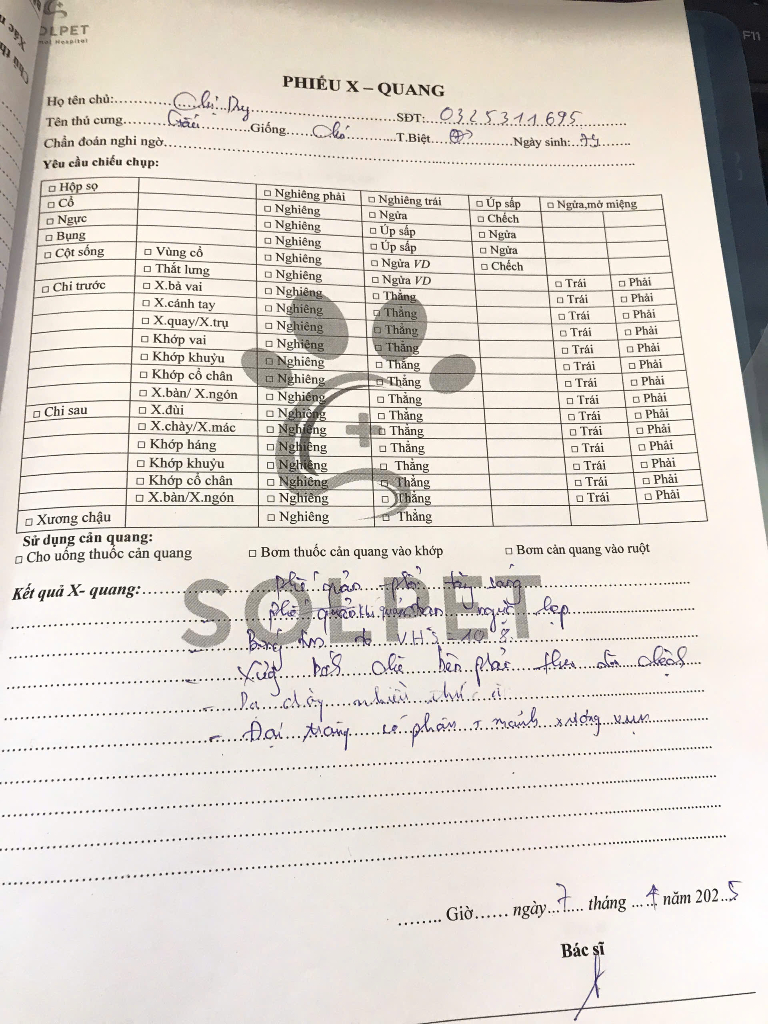 OLPET
nal Hospital
PHIẾU X – QUANG
Họ tên chủ: Duy SĐT: 0325311695
Tên thú cưng Giống Chó T.Biệt Ngày sinh:
Chẩn đoán nghi ngờ
Yêu cầu chiếu chụp:
□ Hộp sọ □ Nghiêng phải □ Nghiêng trái □ Úp sấp □ Ngửa,mở miệng
□ Cổ □ Nghiêng □ Ngửa □ Chếch
□ Ngực □ Nghiêng □ Úp sấp □ Ngửa
□ Bụng □ Nghiêng □ Úp sấp □ Ngửa
□ Cột sống □ Vùng cổ □ Nghiêng □ Ngửa VD □ Chếch
□ Thắt lưng □ Nghiêng □ Ngửa VD
□ Chi trước □ X.bả vai □ Nghiêng □ Thẳng □ Trái □ Phải
□ X.cánh tay □ Nghiêng □ Thẳng □ Trái □ Phải
□ X.quay/X.trụ □ Nghiêng □ Thẳng □ Trái □ Phải
□ Khớp vai □ Nghiêng □ Thẳng □ Trái □ Phải
□ Khớp khuỷu □ Nghiêng □ Thẳng □ Trái □ Phải
□ Khớp cổ chân □ Nghiêng □ Thẳng □ Trái □ Phải
□ X.bàn/ X.ngón □ Nghiêng □ Thẳng □ Trái □ Phải
□ Chi sau □ X.đùi □ Nghiêng □ Thẳng □ Trái □ Phải
□ X.chày/X.mác □ Nghiêng □ Thẳng □ Trái □ Phải
□ Khớp háng □ Nghiêng □ Thẳng □ Trái □ Phải
□ Khớp khuỷu □ Nghiêng □ Thẳng □ Trái □ Phải
□ Khớp cổ chân □ Nghiêng □ Thẳng □ Trái □ Phải
□ X.bàn/X.ngón □ Nghiêng □ Thẳng □ Trái □ Phải
□ Xương chậu □ Nghiêng □ Thẳng
Sử dụng cản quang:
□ Cho uống thuốc cản quang □ Bơm thuốc cản quang vào khớp □ Bơm cản quang vào ruột
Kết quả X- quang: phế quản phổi
SOLPET
phế quản khí quản hẹp
Bóng tim VHS = 10.8
Xương bên phải
- Dạ dày nhiều thức ă
- Đại tràng có phân + mảnh xương vụn
Giờ ngày 7 tháng năm 2025
Bác sĩ